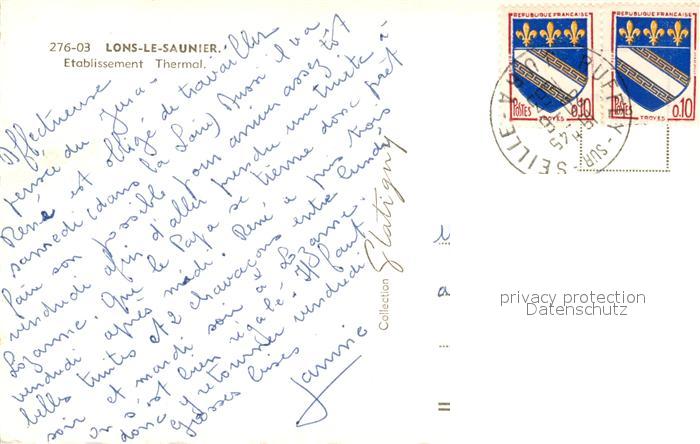 276-03 LONS-LE-SAUNIER.
Etablissement Thermal.
Affectueuse
pensée du Jura
René est obligé de travailler
samedi (dans la Loire) Aussi il va
faire son possible pour arriver assez tôt
vendredi afin d'aller prendre une truite à
Lozanne. Que le Papa se tienne donc prêt
vendredi après midi. René a pris trois
belles truites et 2 chavacons entre lundi
soir et mardi soir à Lozanne.
on s'est bien régalé. Il faut
donc y retourner vendredi
Grosses bises
Jannie
Collection Glatigny
REPUBLIQUE FRANCAISE
POSTES 0,10
TROYES
REPUBLIQUE FRANCAISE
POSTES 0,10
TROYES
RUFFEY-SUR-SEILLE
privacy protection
Datenschutz